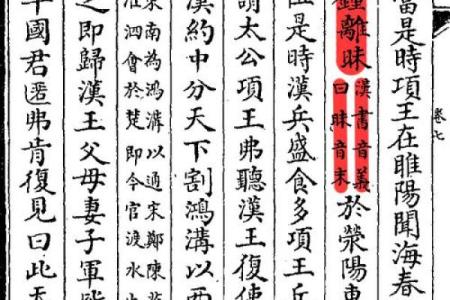 卷七
當是時項王在睢陽聞海春
鍾離眛
漢書音義
曰眛音末
於滎陽東
是時漢兵盛食多項王兵
請太公項王弗聽漢王復使
漢約中分天下割鴻溝以西
東南為鴻溝以通宋鄭陳蔡
淮泗會於楚即今官渡水
之即歸漢王父母妻子軍皆
平國君匿弗肯復見曰此天